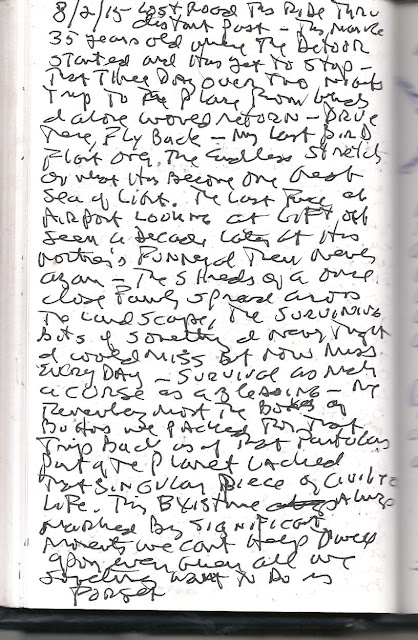 8/2/15 Last Road This Ride Thru
distant Past – This Marks
35 years old when The Detour
started and Has yet to Stop –
That Three Day over Two Nights
Trip To the Place From Which
I alone would return – Drive
There, Fly Back – My Last Bird
Flight Ong. The Endless Stretch
of what Has Become one great
Sea of Light. The Last Face at
Airport Looking at Lift off
Seen a Decade Later at His
Mothers Funeral Then Never
again – The Shreds of a once
close Family spread across
The Landscape, The Surviving
bits of Something I Never Thought
I would Miss But Now Miss
EVERY DAY – Survival as Much
a CURSE as a Blessing – My
Remember Most The Boxes of
Books we Packed For That
Trip Back as if That Particular
Part of the Planet Lacked
That SINGULAR Piece of Civilized
Life. This Existence Always
Marked By Significant
Moments we cant Help Dwell
upon even when all we
Something Want To Do is
Forget